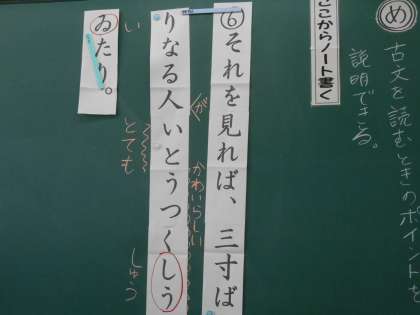 め 古文を読むときのポイントを
説明できる。
ここからノート書く
⑥それを見れば、三寸ば
かわいらしい
が
りなる人いとうつくしう
とても
しゅう
い
ゐたり。